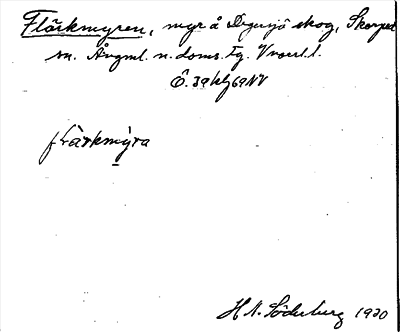 Flärkmyren, myr å Degersjö skog, Skorped
sn. Ångml. n. doms. Tg. Vnorrl. l.
Ö. 39 hlj 69 NV
flärkmy̲ra
H. N. Söderberg 1930